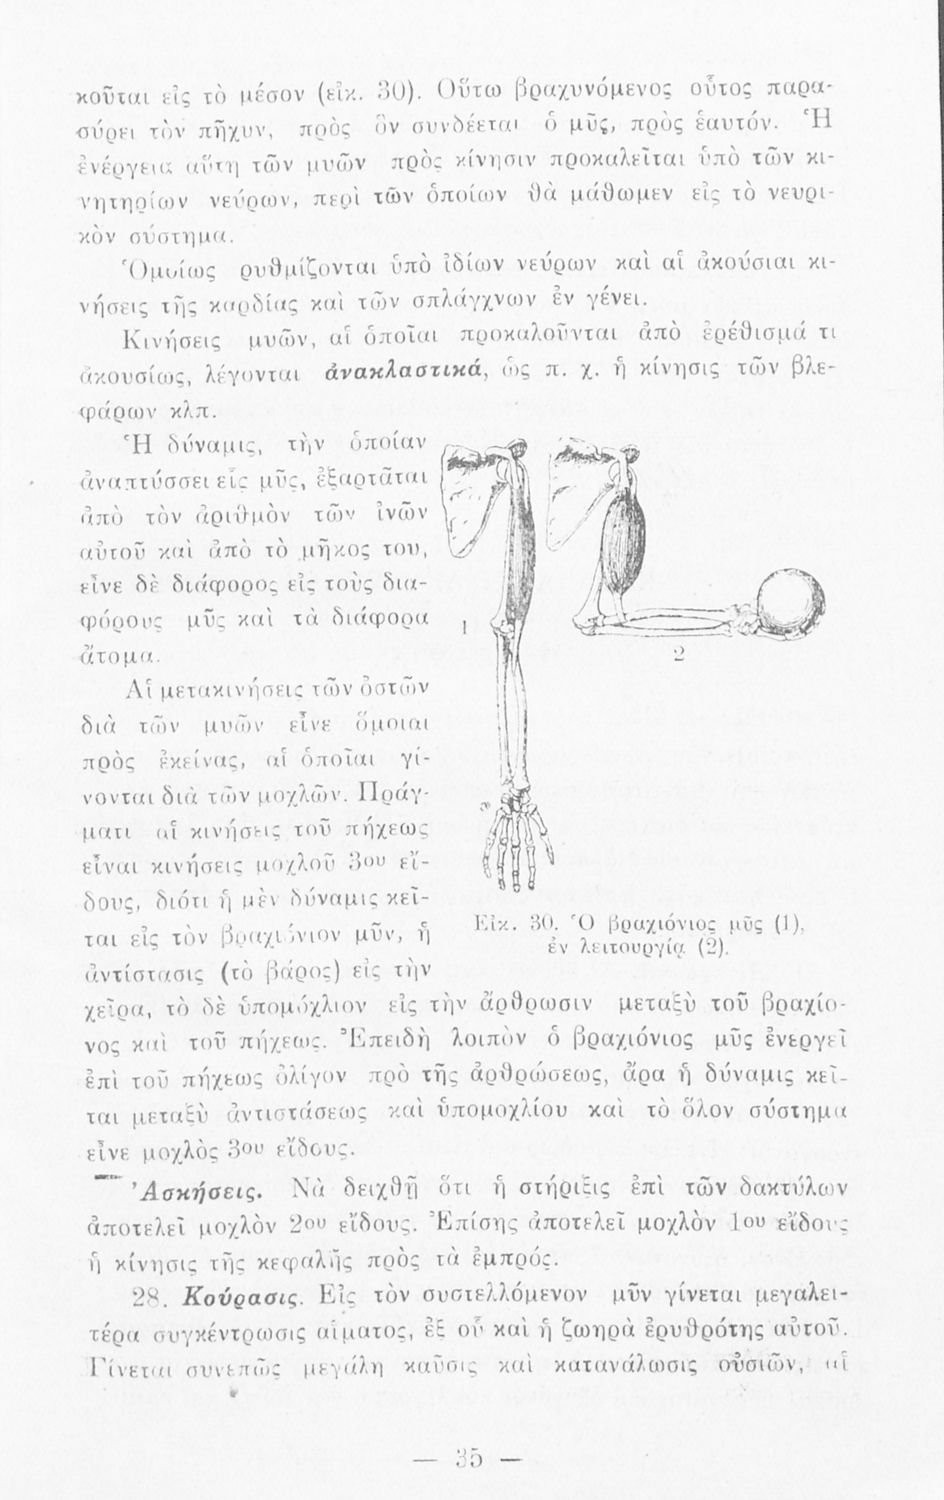 κοῦται εἰς τὸ μέσον (εἰκ. 30). Οὕτω βραχυνόμενος οὗτος παρα-
σύρει τὸν πῆχυν, πρὸς ὃν συνδέεται ὁ μῦς, πρὸς ἑαυτόν. Ἡ
ἐνέργεια αὕτη τῶν μυῶν πρὸς κίνησιν προκαλεῖται ὑπὸ τῶν κι-
νητηρίων νεύρων, περὶ τῶν ὁποίων θὰ μάθωμεν εἰς τὸ νευρι-
κὸν σύστημα.
Ὁμοίως ρυθμίζονται ὑπὸ ἰδίων νεύρων καὶ αἱ ἀκούσιαι κι-
νήσεις τῆς καρδίας καὶ τῶν σπλάγχνων ἐν γένει.
Κινήσεις μυῶν, αἱ ὁποῖαι προκαλοῦνται ἀπὸ ἐρέθισμά τι
ἀκουσίως, λέγονται ἀνακλαστικά, ὡς π. χ. ἡ κίνησις τῶν βλε-
φάρων κλπ.
Ἡ δύναμις, τὴν ὁποίαν
ἀναπτύσσει εἷς μῦς, ἐξαρτᾶται
ἀπὸ τὸν ἀριθμὸν τῶν ἰνῶν
αὐτοῦ καὶ ἀπὸ τὸ μῆκος του,
εἶνε δὲ διάφορος εἰς τοὺς δια-
φόρους μῦς καὶ τὰ διάφορα
ἄτομα.
Αἱ μετακινήσεις τῶν ὀστῶν
διὰ τῶν μυῶν εἶνε ὅμοιαι
πρὸς ἐκείνας, αἱ ὁποῖαι γί-
νονται διὰ τῶν μοχλῶν. Πράγ-
ματι αἱ κινήσεις τοῦ πήχεως
εἶναι κινήσεις μοχλοῦ 3ου εἴ-
δους, διότι ἡ μὲν δύναμις κεῖ-
ται εἰς τὸν βραχιόνιον μῦν, ἡ
ἀντίστασις (τὸ βάρος) εἰς τὴν
1
2
Εἰκ. 30. Ὁ βραχιόνιος μῦς (1),
ἐν λειτουργίᾳ (2).
χεῖρα, τὸ δὲ ὑπομόχλιον εἰς τὴν ἄρθρωσιν μεταξὺ τοῦ βραχίο-
νος καὶ τοῦ πήχεως. Ἐπειδὴ λοιπὸν ὁ βραχιόνιος μῦς ἐνεργεῖ
ἐπὶ τοῦ πήχεως ὀλίγον πρὸ τῆς ἀρθρώσεως, ἄρα ἡ δύναμις κεῖ-
ται μεταξὺ ἀντιστάσεως καὶ ὑπομοχλίου καὶ τὸ ὅλον σύστημα
εἶνε μοχλὸς 3ου εἴδους.
Ἀσκήσεις. Νὰ δειχθῇ ὅτι ἡ στήριξις ἐπὶ τῶν δακτύλων
ἀποτελεῖ μοχλὸν 2ου εἴδους. Ἐπίσης ἀποτελεῖ μοχλὸν 1ου εἴδους
ἡ κίνησις τῆς κεφαλῆς πρὸς τὰ ἐμπρός.
28. Κούρασις. Εἰς τὸν συστελλόμενον μῦν γίνεται μεγαλει-
τέρα συγκέντρωσις αἵματος, ἐξ οὗ καὶ ἡ ζωηρὰ ἐρυθρότης αὐτοῦ.
Γίνεται συνεπῶς μεγάλη καῦσις καὶ κατανάλωσις οὐσιῶν, αἱ
— 35 —